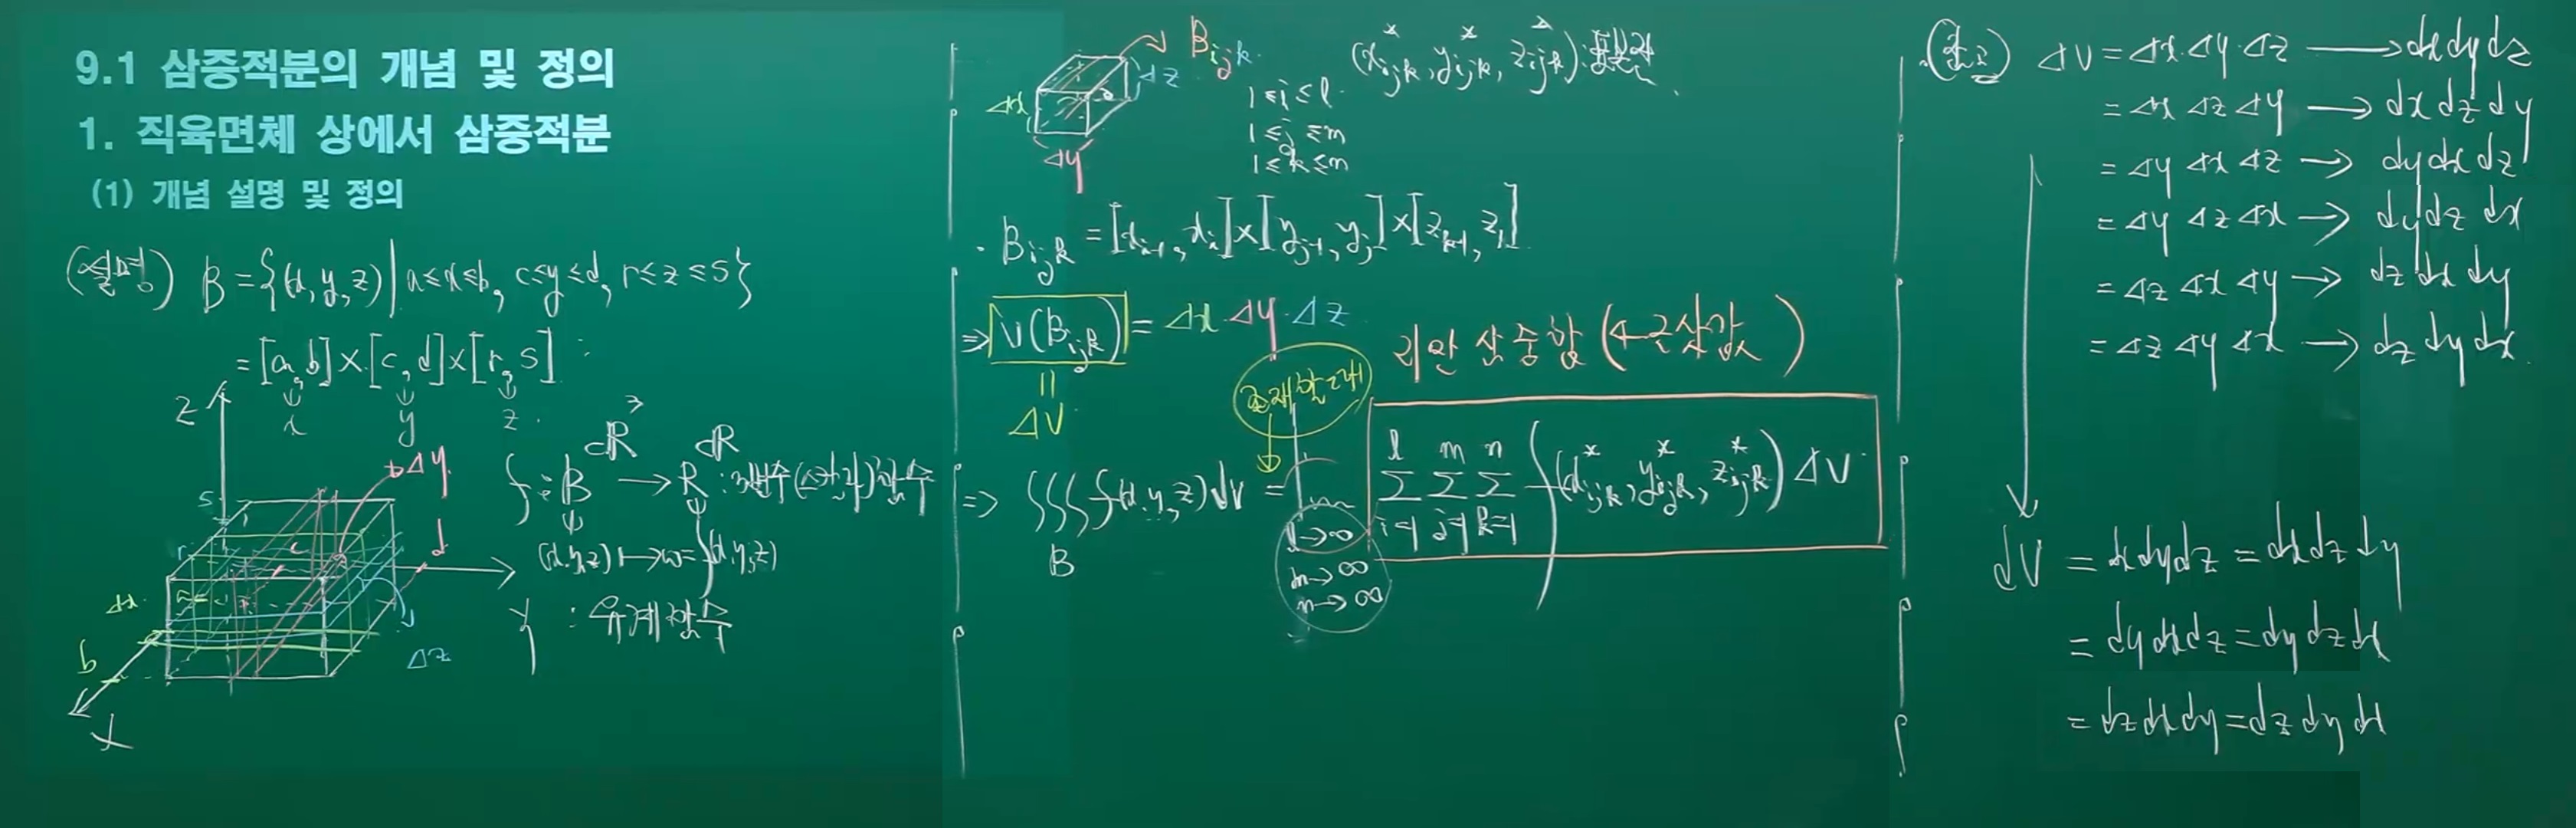 9.1 삼중적분의 개념 및 정의
1. 직육면체 상에서 삼중적분
(1) 개념 설명 및 정의
(설명) B = {(x, y, z) | a ≤ x ≤ b, c ≤ y ≤ d, r ≤ z ≤ s}
= [a, b] × [c, d] × [r, s]
x y z
z
s
r
c
d
Δy
Δx
b
Δz
x
y
f : B ⊂R³ → R ⊂R : 3변수 함수
(x, y, z) ↦ w = f(x, y, z)
: 유계함수
B_ijk
Δx Δy Δz
(x*_ijk, y*_ijk, z*_ijk) :
1 ≤ i ≤ l
1 ≤ j ≤ m
1 ≤ k ≤ n
· B_ijk = [x_i-1, x_i] × [y_j-1, y_j] × [z_k-1, z_k]
⇒ V(B_ijk) = Δx · Δy · Δz
॥
ΔV
존재할 때
리만 삼중합 (← 근삿값)
⇒ ∭_B f(x, y, z) dV = lim l→∞ m→∞ n→∞ Σ_{i=1}^{l} Σ_{j=1}^{m} Σ_{k=1}^{n} f(x*_ijk, y*_ijk, z*_ijk) ΔV
ΔV = Δx · Δy · Δz → dx dy dz
= Δx Δz Δy → dx dz dy
= Δy Δx Δz → dy dx dz
= Δy Δz Δx → dy dz dx
= Δz Δx Δy → dz dx dy
= Δz Δy Δx → dz dy dx
dV = dx dy dz = dx dz dy
= dy dx dz = dy dz dx
= dz dx dy = dz dy dx